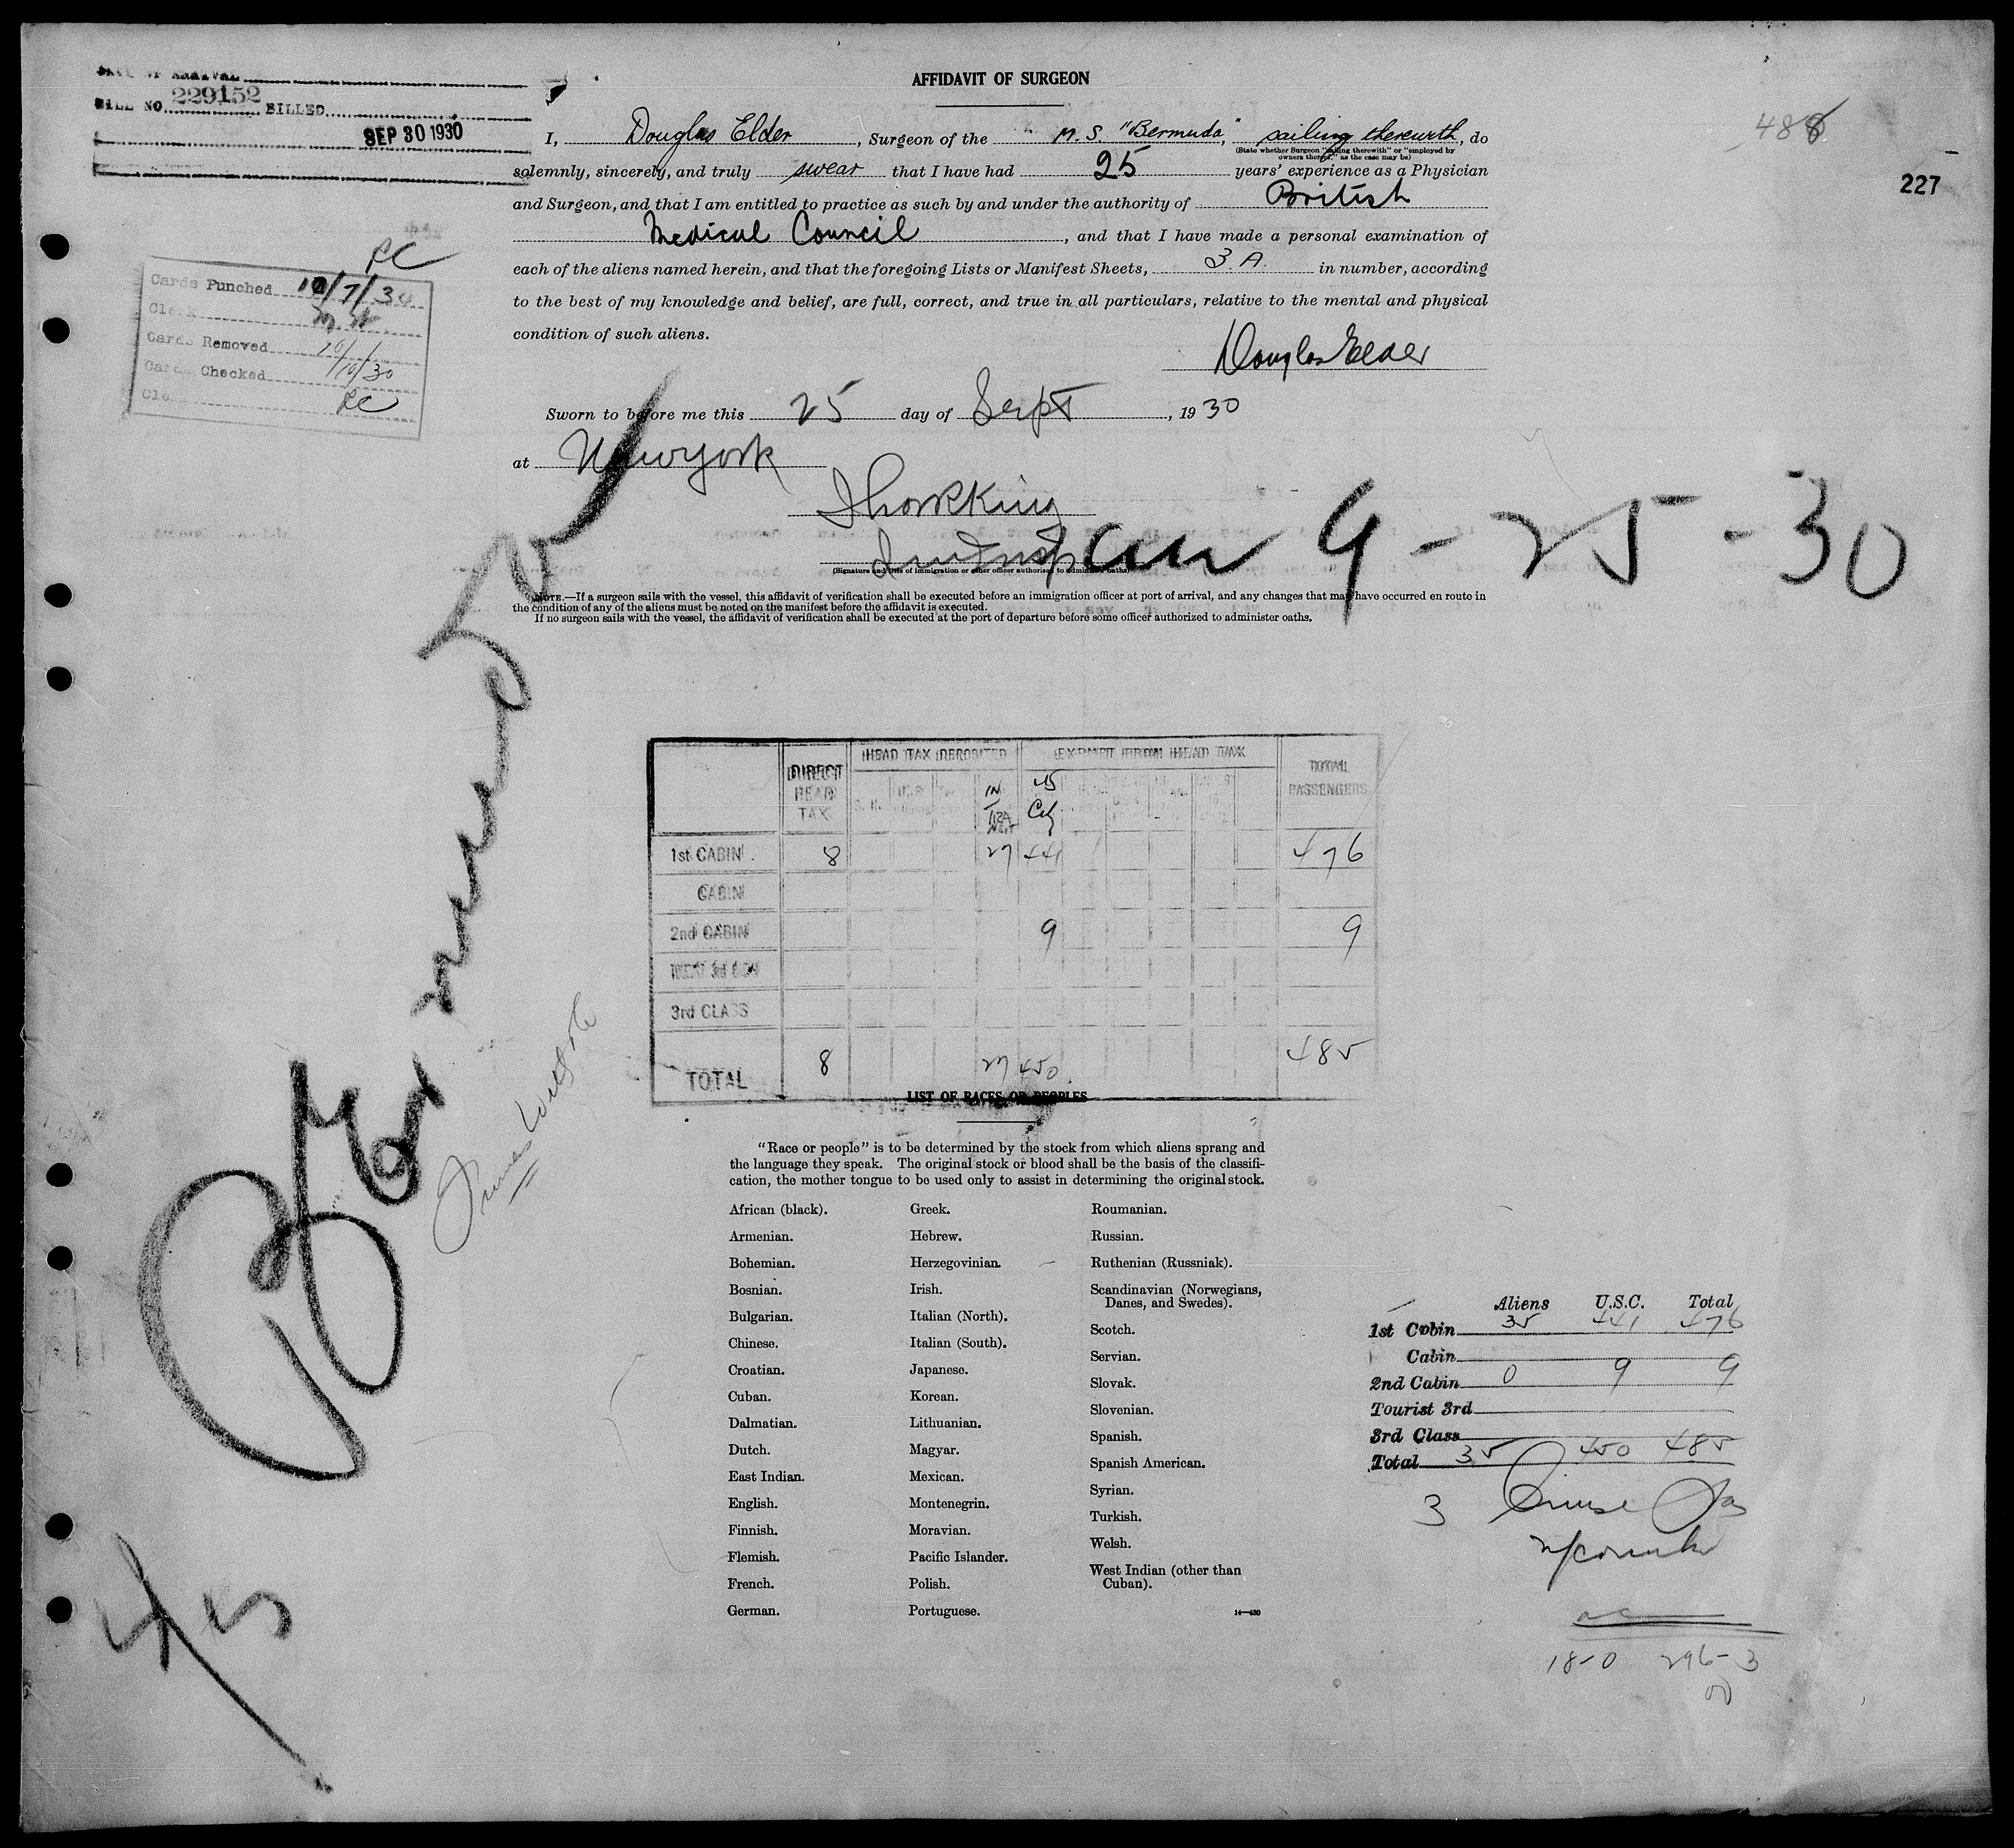 DATE OF ARRIVAL
BILL NO. 229152 BILLED
SEP 30 1930
AFFIDAVIT OF SURGEON
488
227
I, Douglas Elder, Surgeon of the M. S. "Bermuda", sailing therewith, do
(State whether Surgeon "sailing therewith" or "employed by
owners thereof," as the case may be)
solemnly, sincerely, and truly swear that I have had 25 years' experience as a Physician
and Surgeon, and that I am entitled to practice as such by and under the authority of British
Medical Council, and that I have made a personal examination of
each of the aliens named herein, and that the foregoing Lists or Manifest Sheets, 3.A. in number, according
to the best of my knowledge and belief, are full, correct, and true in all particulars, relative to the mental and physical
condition of such aliens.
Douglas Elder
RC
Cards Punched 10/7/30
Clerk
Cards Removed
Cards Checked 10/10/30
Clerk RC
Sworn to before me this 25 day of Sept, 1930
at New York
arr 9-25-30
(Signature and title of immigration or other officer authorized to administer oaths)
NOTE.—If a surgeon sails with the vessel, this affidavit of verification shall be executed before an immigration officer at port of arrival, and any changes that may have occurred en route in
the condition of any of the aliens must be noted on the manifest before the affidavit is executed.
If no surgeon sails with the vessel, the affidavit of verification shall be executed at the port of departure before some officer authorized to administer oaths.
Bermuda
DIRECT HEAD TAX
HEAD TAX DEPOSITED
EXEMPT FROM HEAD TAX
TOTAL PASSENGERS
IN TRANSIT
US Cit
1st CABIN 8 27 441 476
CABIN
2nd CABIN 9 9
3rd CLASS
TOTAL 8 27 450 485
LIST OF RACES OR PEOPLES
"Race or people" is to be determined by the stock from which aliens sprang and
the language they speak. The original stock or blood shall be the basis of the classifi-
cation, the mother tongue to be used only to assist in determining the original stock.
African (black).
Armenian.
Bohemian.
Bosnian.
Bulgarian.
Chinese.
Croatian.
Cuban.
Dalmatian.
Dutch.
East Indian.
English.
Finnish.
Flemish.
French.
German.
Greek.
Hebrew.
Herzegovinian.
Irish.
Italian (North).
Italian (South).
Japanese.
Korean.
Lithuanian.
Magyar.
Mexican.
Montenegrin.
Moravian.
Pacific Islander.
Polish.
Portuguese.
Roumanian.
Russian.
Ruthenian (Russniak).
Scandinavian (Norwegians,
Danes, and Swedes).
Scotch.
Servian.
Slovak.
Slovenian.
Spanish.
Spanish American.
Syrian.
Turkish.
Welsh.
West Indian (other than
Cuban).
14—430
Aliens U.S.C. Total
1st Cabin 35 441 476
Cabin
2nd Cabin 0 9 9
Tourist 3rd
3rd Class
Total 35 450 485
3 Cruise Pas
18-0 296-3